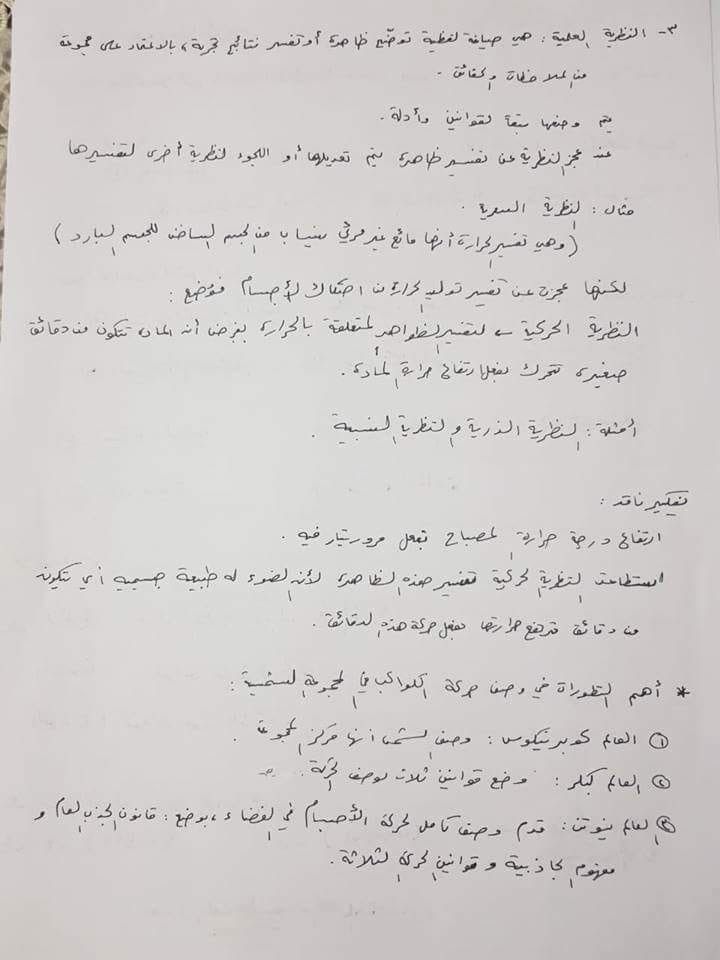 ٣- النظرية العلمية : هي صياغة لفظية توضّح ظاهرة أو تفسر نتائج تجربة ، بالاعتماد على مجموعة
من الملاحظات والحقائق .
يتم وضعها تبعًا لقوانين وأدلة .
عند عجز النظرية عن تفسير ظاهرة يتم تعديلها أو اللجوء لنظرية أخرى لتفسيرها
مثال : النظرية السعرية .
( وهي تفسير الحرارة أنها مائع غير مرئي ينساب من الجسم الساخن للجسم البارد )
لكنها عجزت عن تفسير توليد الحرارة من احتكاك الأجسام فوُضع :
النظرية الحركية لتفسير الظواهر المتعلقة بالحرارة بفرض أن المادة تتكون من دقائق
صغيرة تتحرك بفعل ارتفاع حرارة المادة .
أمثلة : النظرية الذرية والنظرية النسبية .
تفكير ناقد :
ارتفاع درجة حرارة المصباح بفعل مرور تيار فيه .
استطاعت النظرية الحركية تفسير هذه الظاهرة لأن الضوء له طبيعة جسيمية أي تتكون
من دقائق فترتفع حرارتها بفعل حركة هذه الدقائق .
* أهم التطورات في وصف حركة الكواكب في المجموعة الشمسية :
① العالم كوبرنيكوس : وصف الشمس أنها مركز المجموعة .
② العالم كبلر : وضع قوانين ثلاث لوصف الحركة .
③ العالم نيوتن : قدم وصف كامل لحركة الأجسام في الفضاء ، بوضع : قانون الجذب العام و
مفهوم الجاذبية وقوانين الحركة الثلاثة .